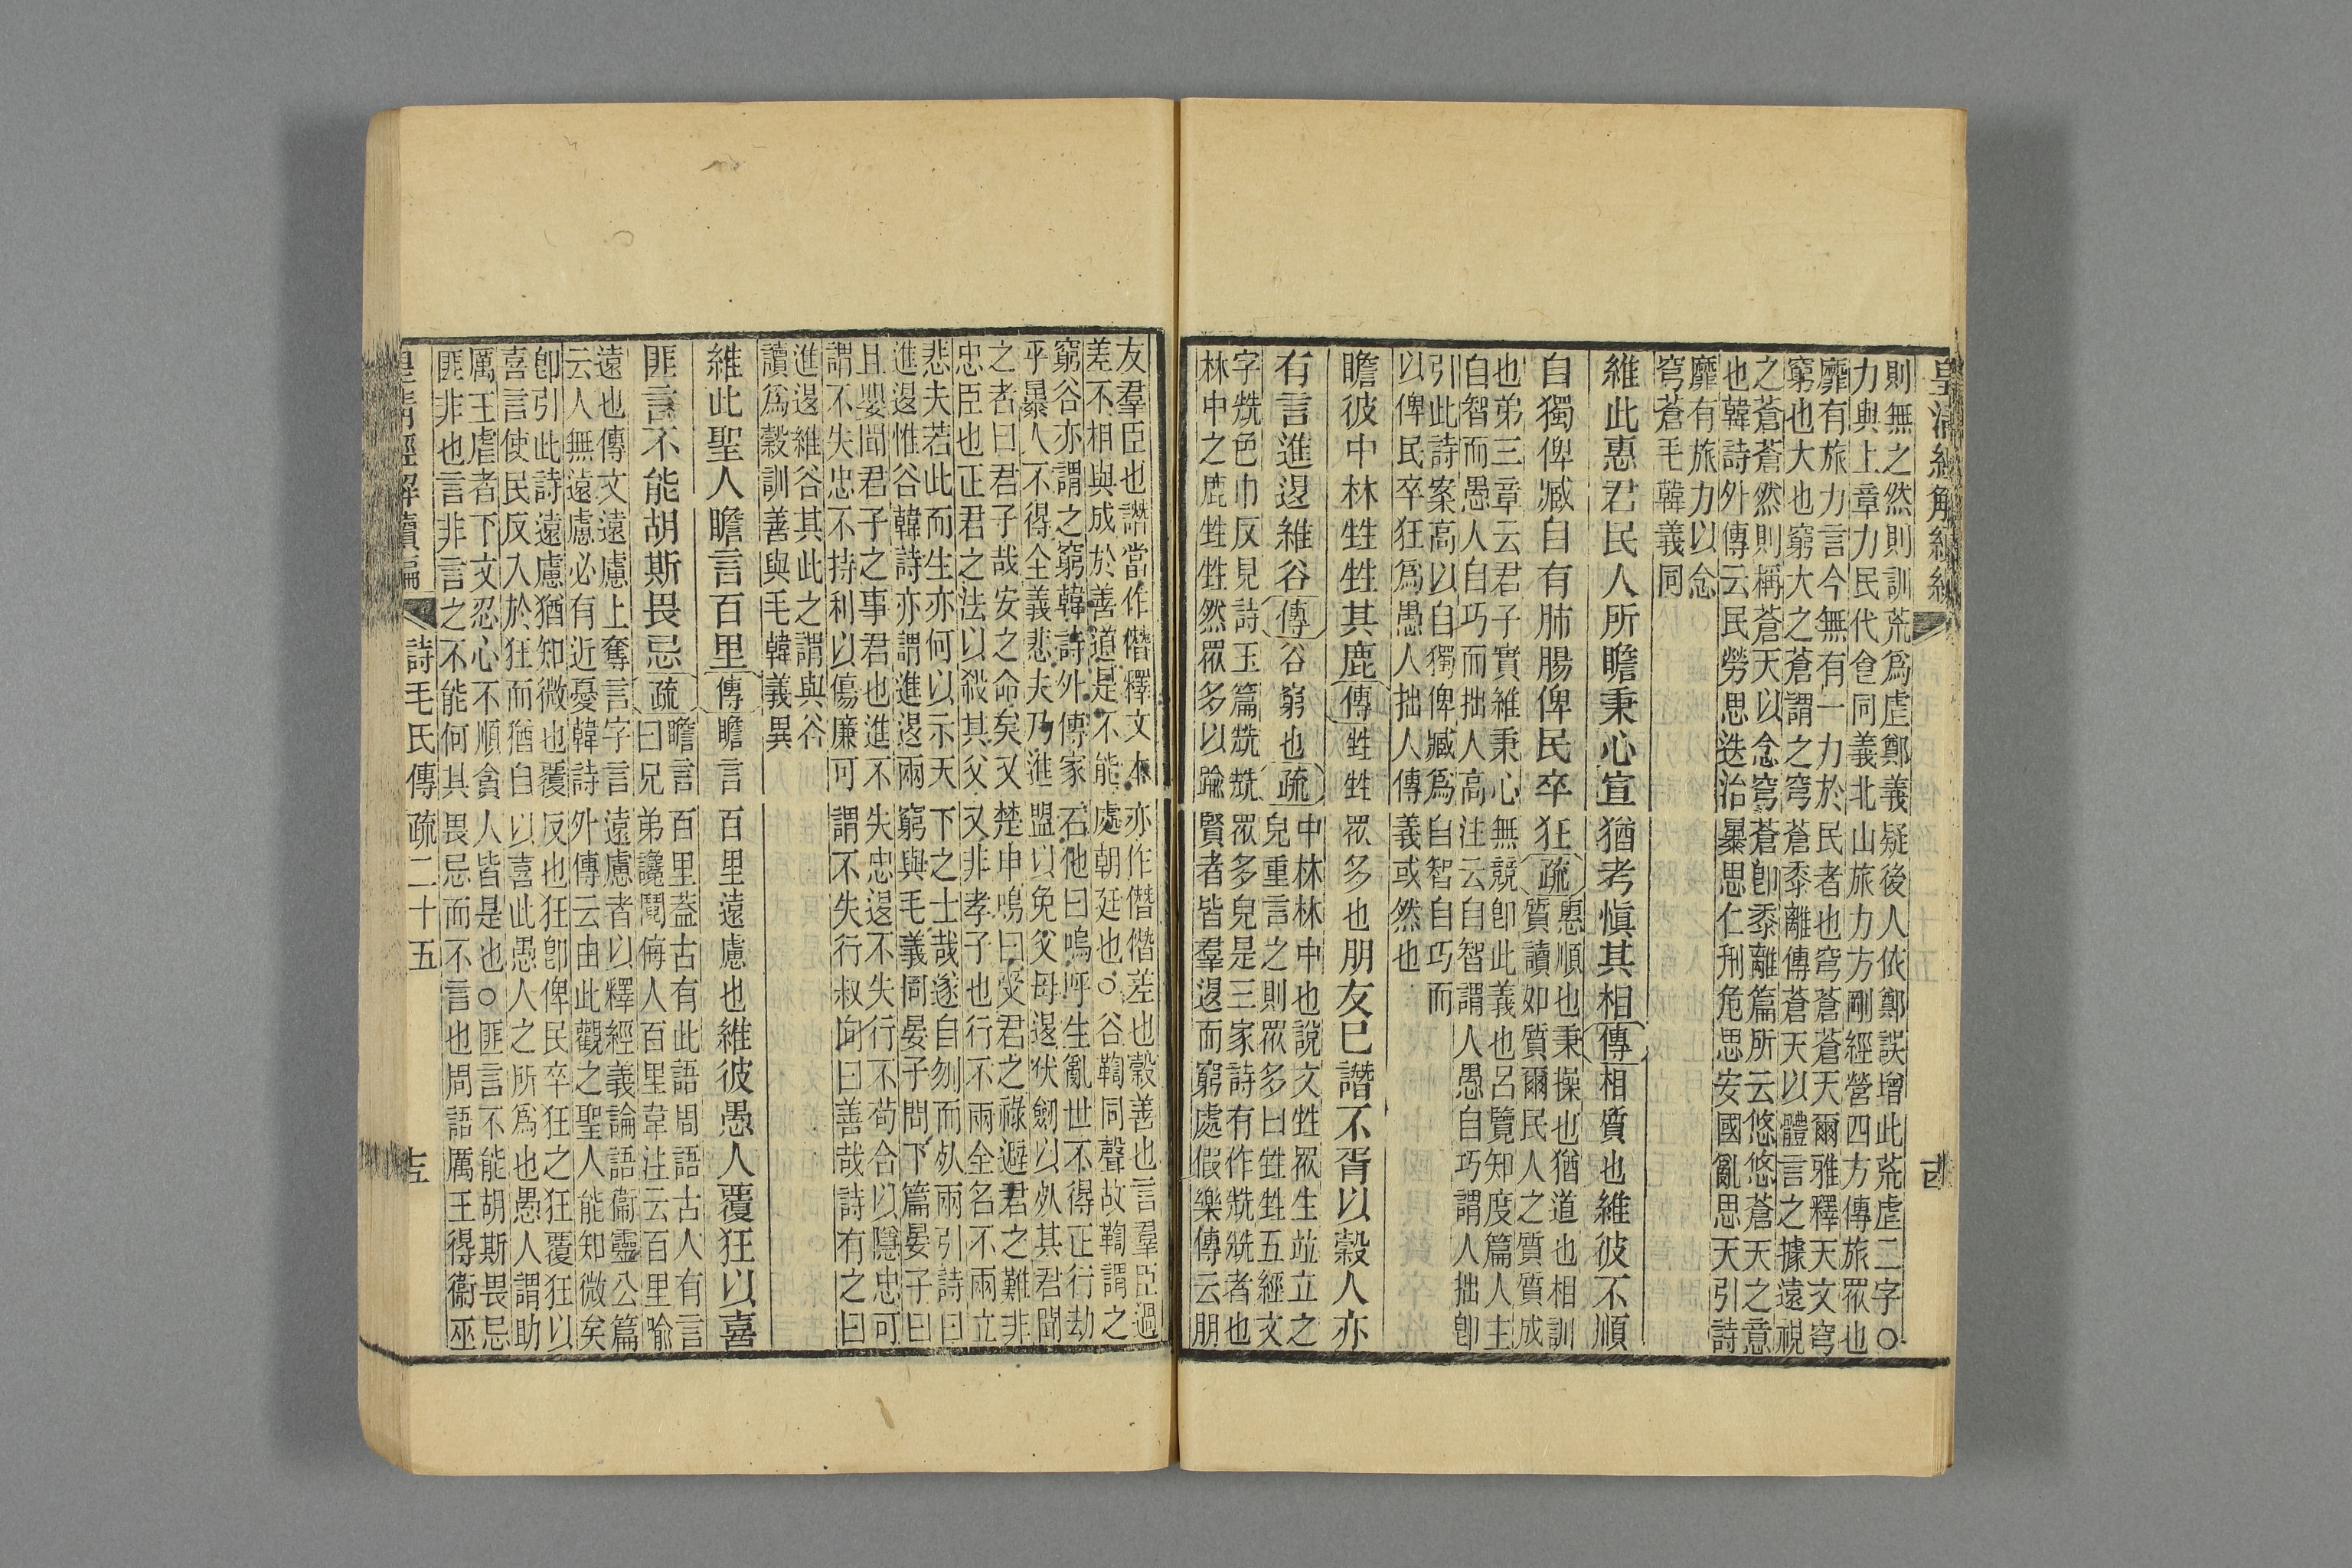 皇清經解續編
則無之然則訓荒爲虐鄭義疑後人依鄭誤增此荒虐二字○
力與上章力民代食同義北山旅力方剛經營四方傳旅眾也
靡有旅力言今無有一力於民者也穹蒼蒼天爾雅釋天文穹
窮也大也窮大之蒼謂之穹蒼黍離傳蒼天以體言之據遠視
之蒼蒼然則稱蒼天以念穹蒼卽黍離篇所云悠悠蒼天之意
也韓詩外傳云民勞思迭治暴思仁刑危思安國亂思天引詩
靡有旅力以念
穹蒼毛韓義同
維此惠君民人所瞻秉心宣猶考愼其相傳相質也維彼不順
自獨俾臧自有肺腸俾民卒狂疏惠順也秉操也猶道也相訓
質讀如質爾民人之質質成
也弟三章云君子實維秉心無競卽此義也呂覽知度篇人主
自智而愚人自巧而拙人高注云自智謂人愚自巧謂人拙卽
引此詩案高以自獨俾臧爲自智自巧而
以俾民卒狂爲愚人拙人傳義或然也
瞻彼中林甡甡其鹿傳甡甡眾多也朋友已譖不胥以穀人亦
有言進退維谷傳谷窮也疏中林林中也說文甡眾生竝立之
皃重言之則眾多曰甡甡五經文
字兟色巾反見詩玉篇兟兟眾多皃是三家詩有作兟兟者也
林中之鹿甡甡然眾多以踰賢者皆羣退而窮處假樂傳云朋
友羣臣也譖當作僭釋文本亦作僭僭差也穀善也言羣臣過
差不相與成於善道是不能處朝廷也○谷鞫同聲故鞫謂之
窮谷亦謂之窮韓詩外傳家石他曰嗚呼生亂世不得正行劫
乎暴人不得全義悲夫乃進盟以免父母退伏劒以死其君聞
之者曰君子哉安之命矣又楚申鳴曰受君之祿避君之難非
忠臣也正君之法以殺其父又非孝子也行不兩全名不兩立
悲夫若此而生亦何以示天下之士哉遂自刎而死兩引詩曰
進退惟谷韓詩亦謂進退兩窮與毛義同晏子問下篇晏子曰
且嬰聞君子之事君也進不失忠退不失行不苟合以隱忠可
謂不失忠不持利以傷廉可謂不失行叔向曰善哉詩有之曰
進退維谷其此之謂與谷
讀爲穀訓善與毛韓義異
維此聖人瞻言百里傳瞻言百里遠慮也維彼愚人覆狂以喜
匪言不能胡斯畏忌疏瞻言百里葢古有此語周語古人有言
曰兄弟讒鬩侮人百里韋注云百里喻
遠也傳文遠慮上奪言字言遠慮者以釋經義論語衞靈公篇
云人無遠慮必有近憂韓詩外傳云由此觀之聖人能知微矣
卽引此詩遠慮猶知微也覆反也狂卽俾民卒狂之狂覆狂以
喜言使民反入於狂而猶自以喜此愚人之所爲也愚人謂助
厲王虐者下文忍心不順貪人皆是也○匪言不能胡斯畏忌
匪非也言非言之不能何其畏忌而不言也周語厲王得衞巫
皇清經解續編 詩毛氏傳疏二十五